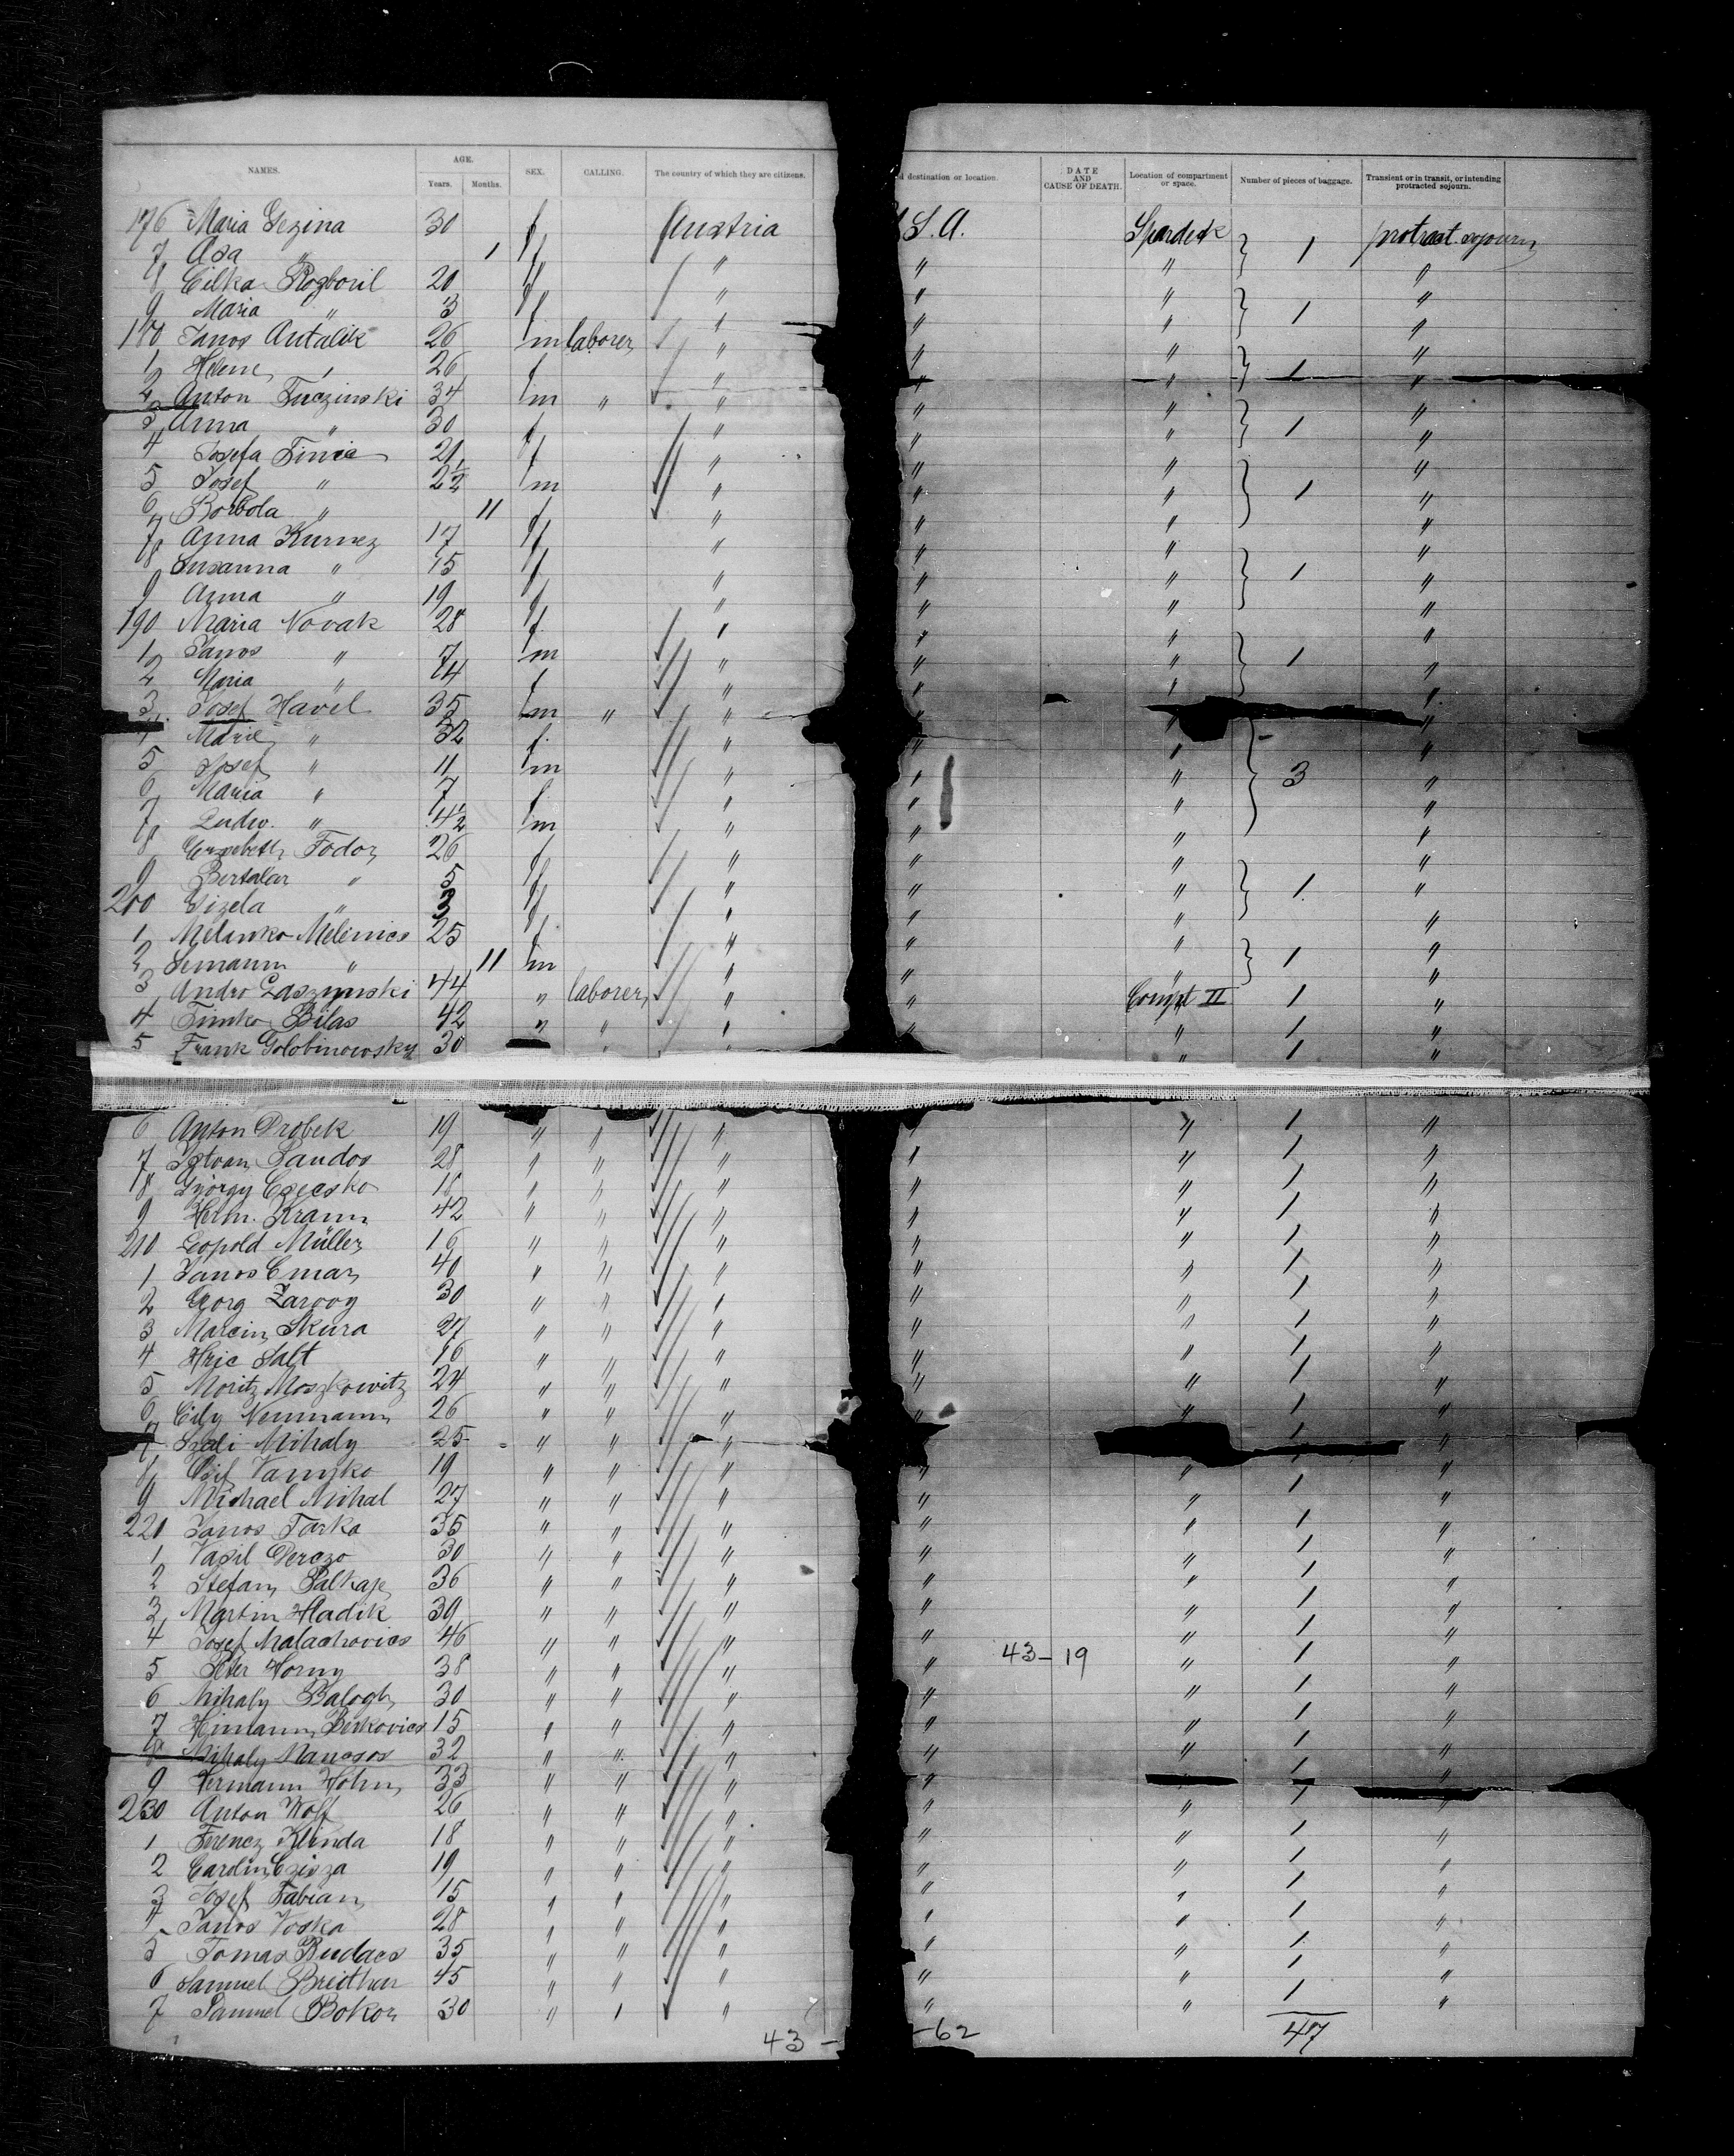 NAMES. AGE. Years. Months. SEX. CALLING. The country of which they are citizens. d destination or location. DATE AND CAUSE OF DEATH. Location of compartment or space. Number of pieces of baggage. Transient or in transit, or intending protracted sojourn.
176 Maria Gezina 30 f Austria S.A. Spardeck 1 protract. sojourn
7 Asa " 1 f " " " "
8 Cilka Rozboril 20 f " " " "
9 Maria " 3 f " " " 1 "
180 Janos Antalik 26 m laborer " " " "
1 Helene " 26 f " " " 1 "
2 Anton Tuczinski 34 m " " " " "
3 Anna " 30 f " " " 1 "
4 Josefa Finic 21 f " " " "
5 Josef " 2½ m " " " 1 "
6 Borbola " 11 f " " " "
7 Anna Kurnez 17 f " " " "
8 Susanna " 15 f " " " 1 "
9 Anna " 19 f " " " "
190 Maria Novak 28 f " " " "
1 Janos " 7 m " " " 1 "
2 Maria " f " " " "
3 Josef Havel 35 m " " " "
4 Marie " 32 f " " " "
5 Josef " 11 m " " " 3 "
6 Maria " 7 f " " " "
7 Ludw. " 4½ m " " " "
8 Erzsebeth Fodor 26 f " " " "
9 Bertalan " 5 f " " " 1 "
200 Gizela " 3 f " " " "
1 Melanko Melinics 25 f " " " "
2 Semann " 11 m " " " 1 "
3 Andro Laszynski 44 " laborer " " Compt II 1 "
4 Timko Bilas 42 " " " " " 1 "
5 Frank Golobinowsky 30 " " " 1 "
6 Anton Drobek 19 " " " " " 1 "
7 Istvan Sandos 28 " " " " " 1 "
8 György Csecsko 18 " " " " " 1 "
9 Herm. Kramm 42 " " " " " 1 "
210 Leopold Müller 16 " " " " " 1 "
1 Janos Cmar 40 " " " " " 1 "
2 Georg Zarovy 30 " " " " " 1 "
3 Marcin Skura 27 " " " " " 1 "
4 Hric Salt 16 " " " " " 1 "
5 Moritz Moszkowitz 24 " " " " " 1 "
6 Cily Neumann 26 " " " " " 1 "
7 Szali Mihaly 25 " " " 1 "
8 Vanyko 19 " " " " " 1 "
9 Michael Mihal 27 " " " " " 1 "
220 Janos Tarka 35 " " " " " 1 "
1 Vasil Derczo 30 " " " " " 1 "
2 Stefan Palkaj 36 " " " " " 1 "
3 Martin Hladik 39 " " " " " 1 "
4 Josef Malachovics 46 " " " " " 1 "
5 Peter Horny 38 " " " " 43-19 " 1 "
6 Mihaly Balogh 30 " " " " " 1 "
7 Himann Berkovics 15 " " " " " 1 "
8 Mihaly Nancsos 32 " " " " " 1 "
9 Hermann Hohn 33 " " " " 1 "
230 Anton Wolf 26 " " " " " 1 "
1 Ferencz Klinda 18 " " " " " 1 "
2 Carolin Czisza 19 " " " " " 1 "
3 Josef Fabian 15 " " " " " 1 "
4 Janos Voska 28 " " " " " 1 "
5 Tomas Budacs 35 " " " " " 1 "
6 Samuel Breithar 45 " " " " " 1 "
7 Samuel Bokor 30 " " " " " 1 "
43 - -62 47